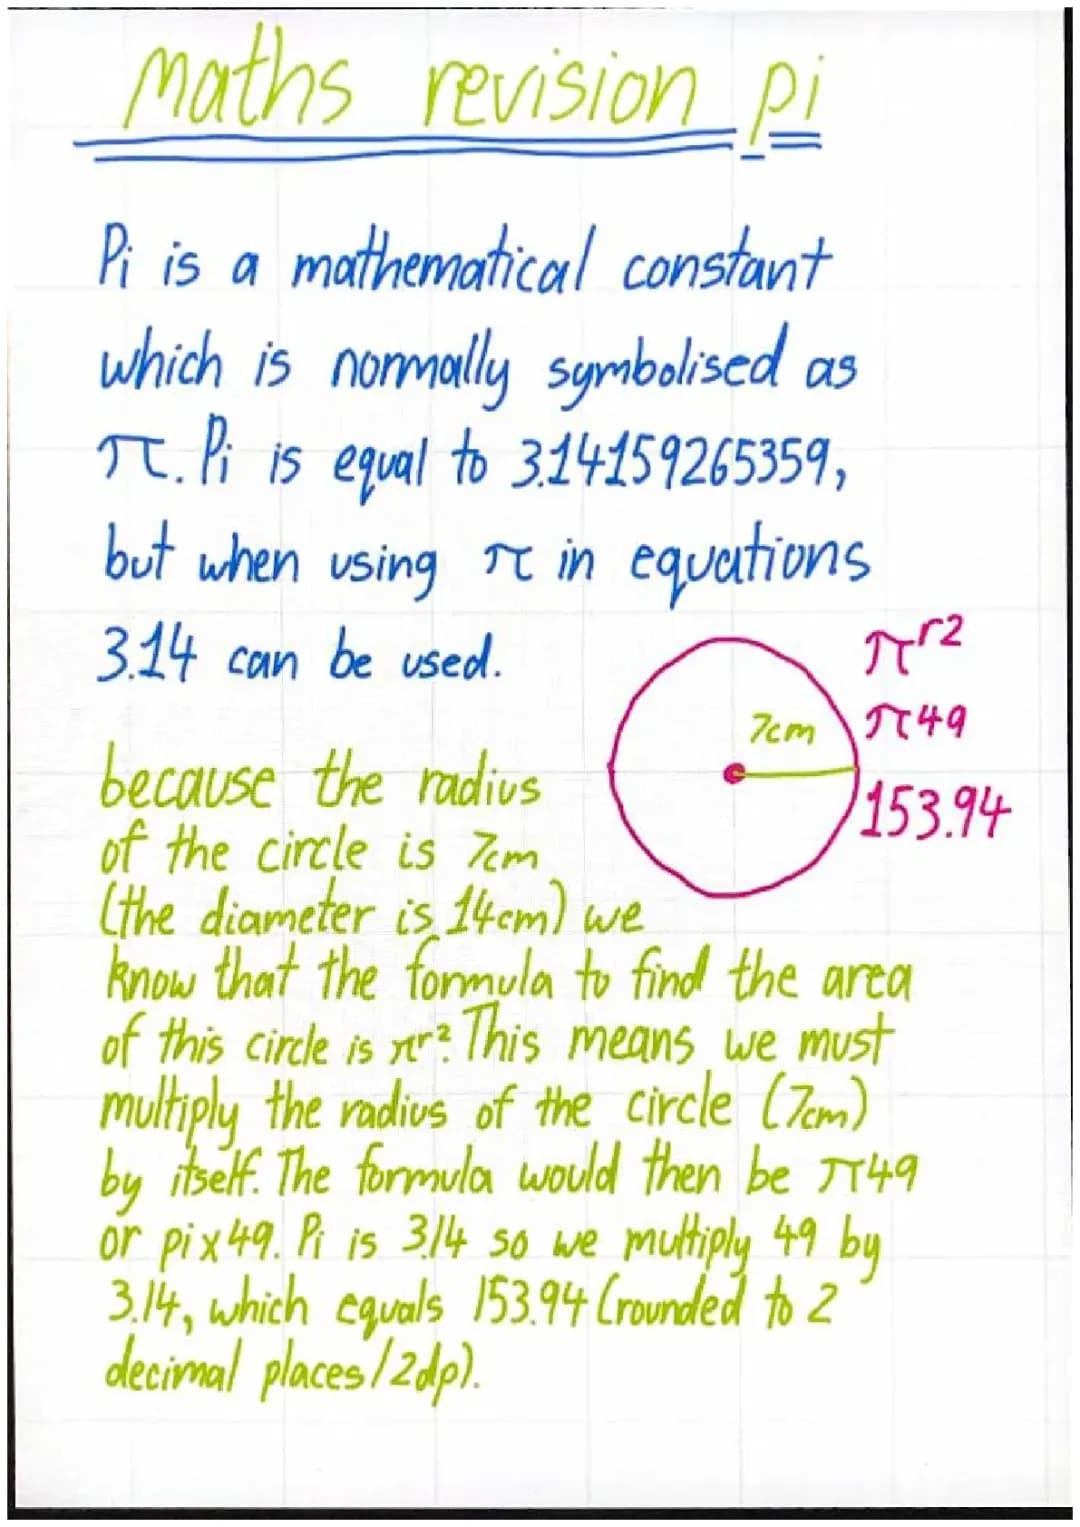 maths revision pi
Pi is a mathematical constant
which is normally symbolised as
π. Pi is equal to 3.14159265359,
but when using π in equations
3.14 can be used.
πr2
7cm
π49
153.94
because the radius
of the circle is 7cm
(the diameter is 14cm) we
know that the formula to find the area
of this circle is πr². This means we must
multiply the radius of the circle (7cm)
by itself. The formula would then be π49
or pi x 49. Pi is 3.14 so we multiply 49 by
3.14, which equals 153.94 (rounded to 2
decimal places/2dp).